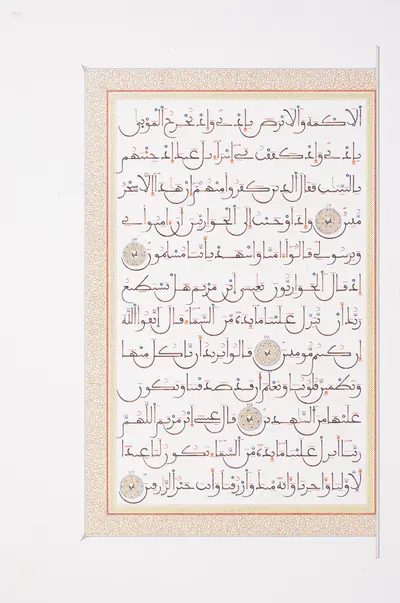 الاكمه والابرص باذني واذ تخرج الموتى
باذني واذ كففت بني اسراءيل عنك اذ جئتهم
بالبينت فقال الذين كفروا منهم ان هذا الا سحر
مبين واذ اوحيت الى الحوارين ان امنوا بي
وبرسولي قالوا امنا واشهد باننا مسلمون
اذ قال الحواريون يعيسى ابن مريم هل يستطيع
ربك ان ينزل علينا مايدة من السماء قال اتقوا الله
ان كنتم مومنين قالوا نريد ان ناكل منها
وتطمين قلوبنا ونعلم ان قد صدقتنا ونكون
عليها من الشهدين قال عيسى ابن مريم اللهم
ربنا انزل علينا مايدة من السماء تكون لنا عيدا
لاولنا واخرنا واية منك وارزقنا وانت خير الرزقين